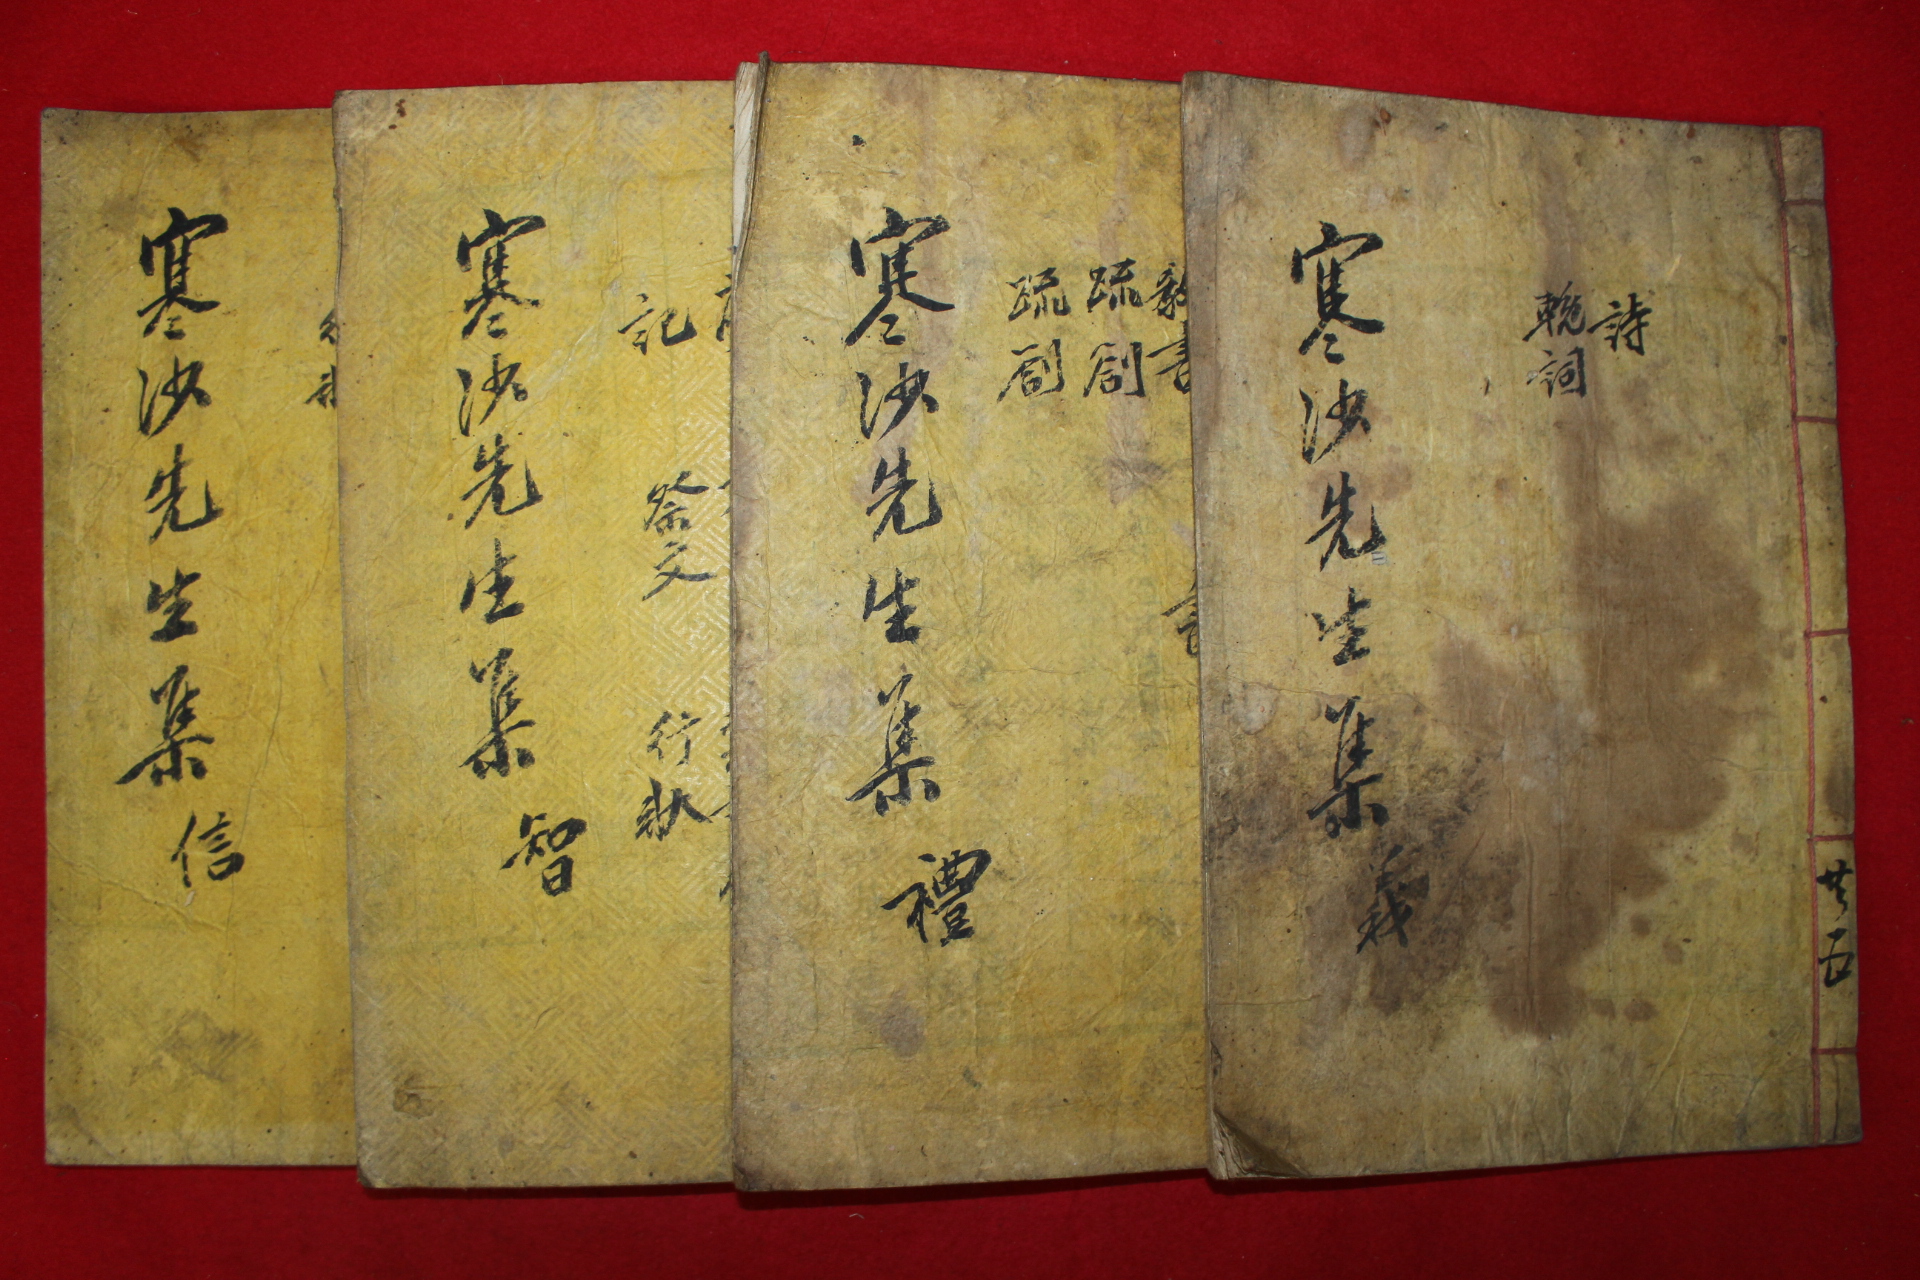 詩
輓詞
寒沙先生集
義
共五
敎書
疏劄
疏劄
寒沙先生集
禮
記
祭文
行狀
寒沙先生集
智
寒沙先生集
信